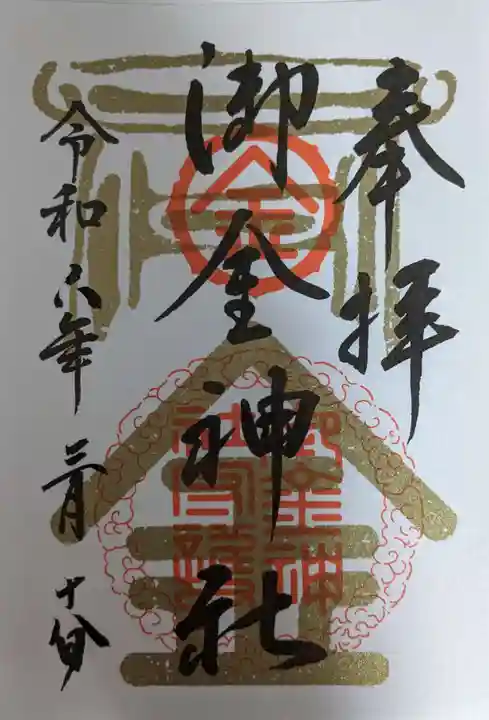 奉拝
御金神社
令和六年三月十四日
金
御金神